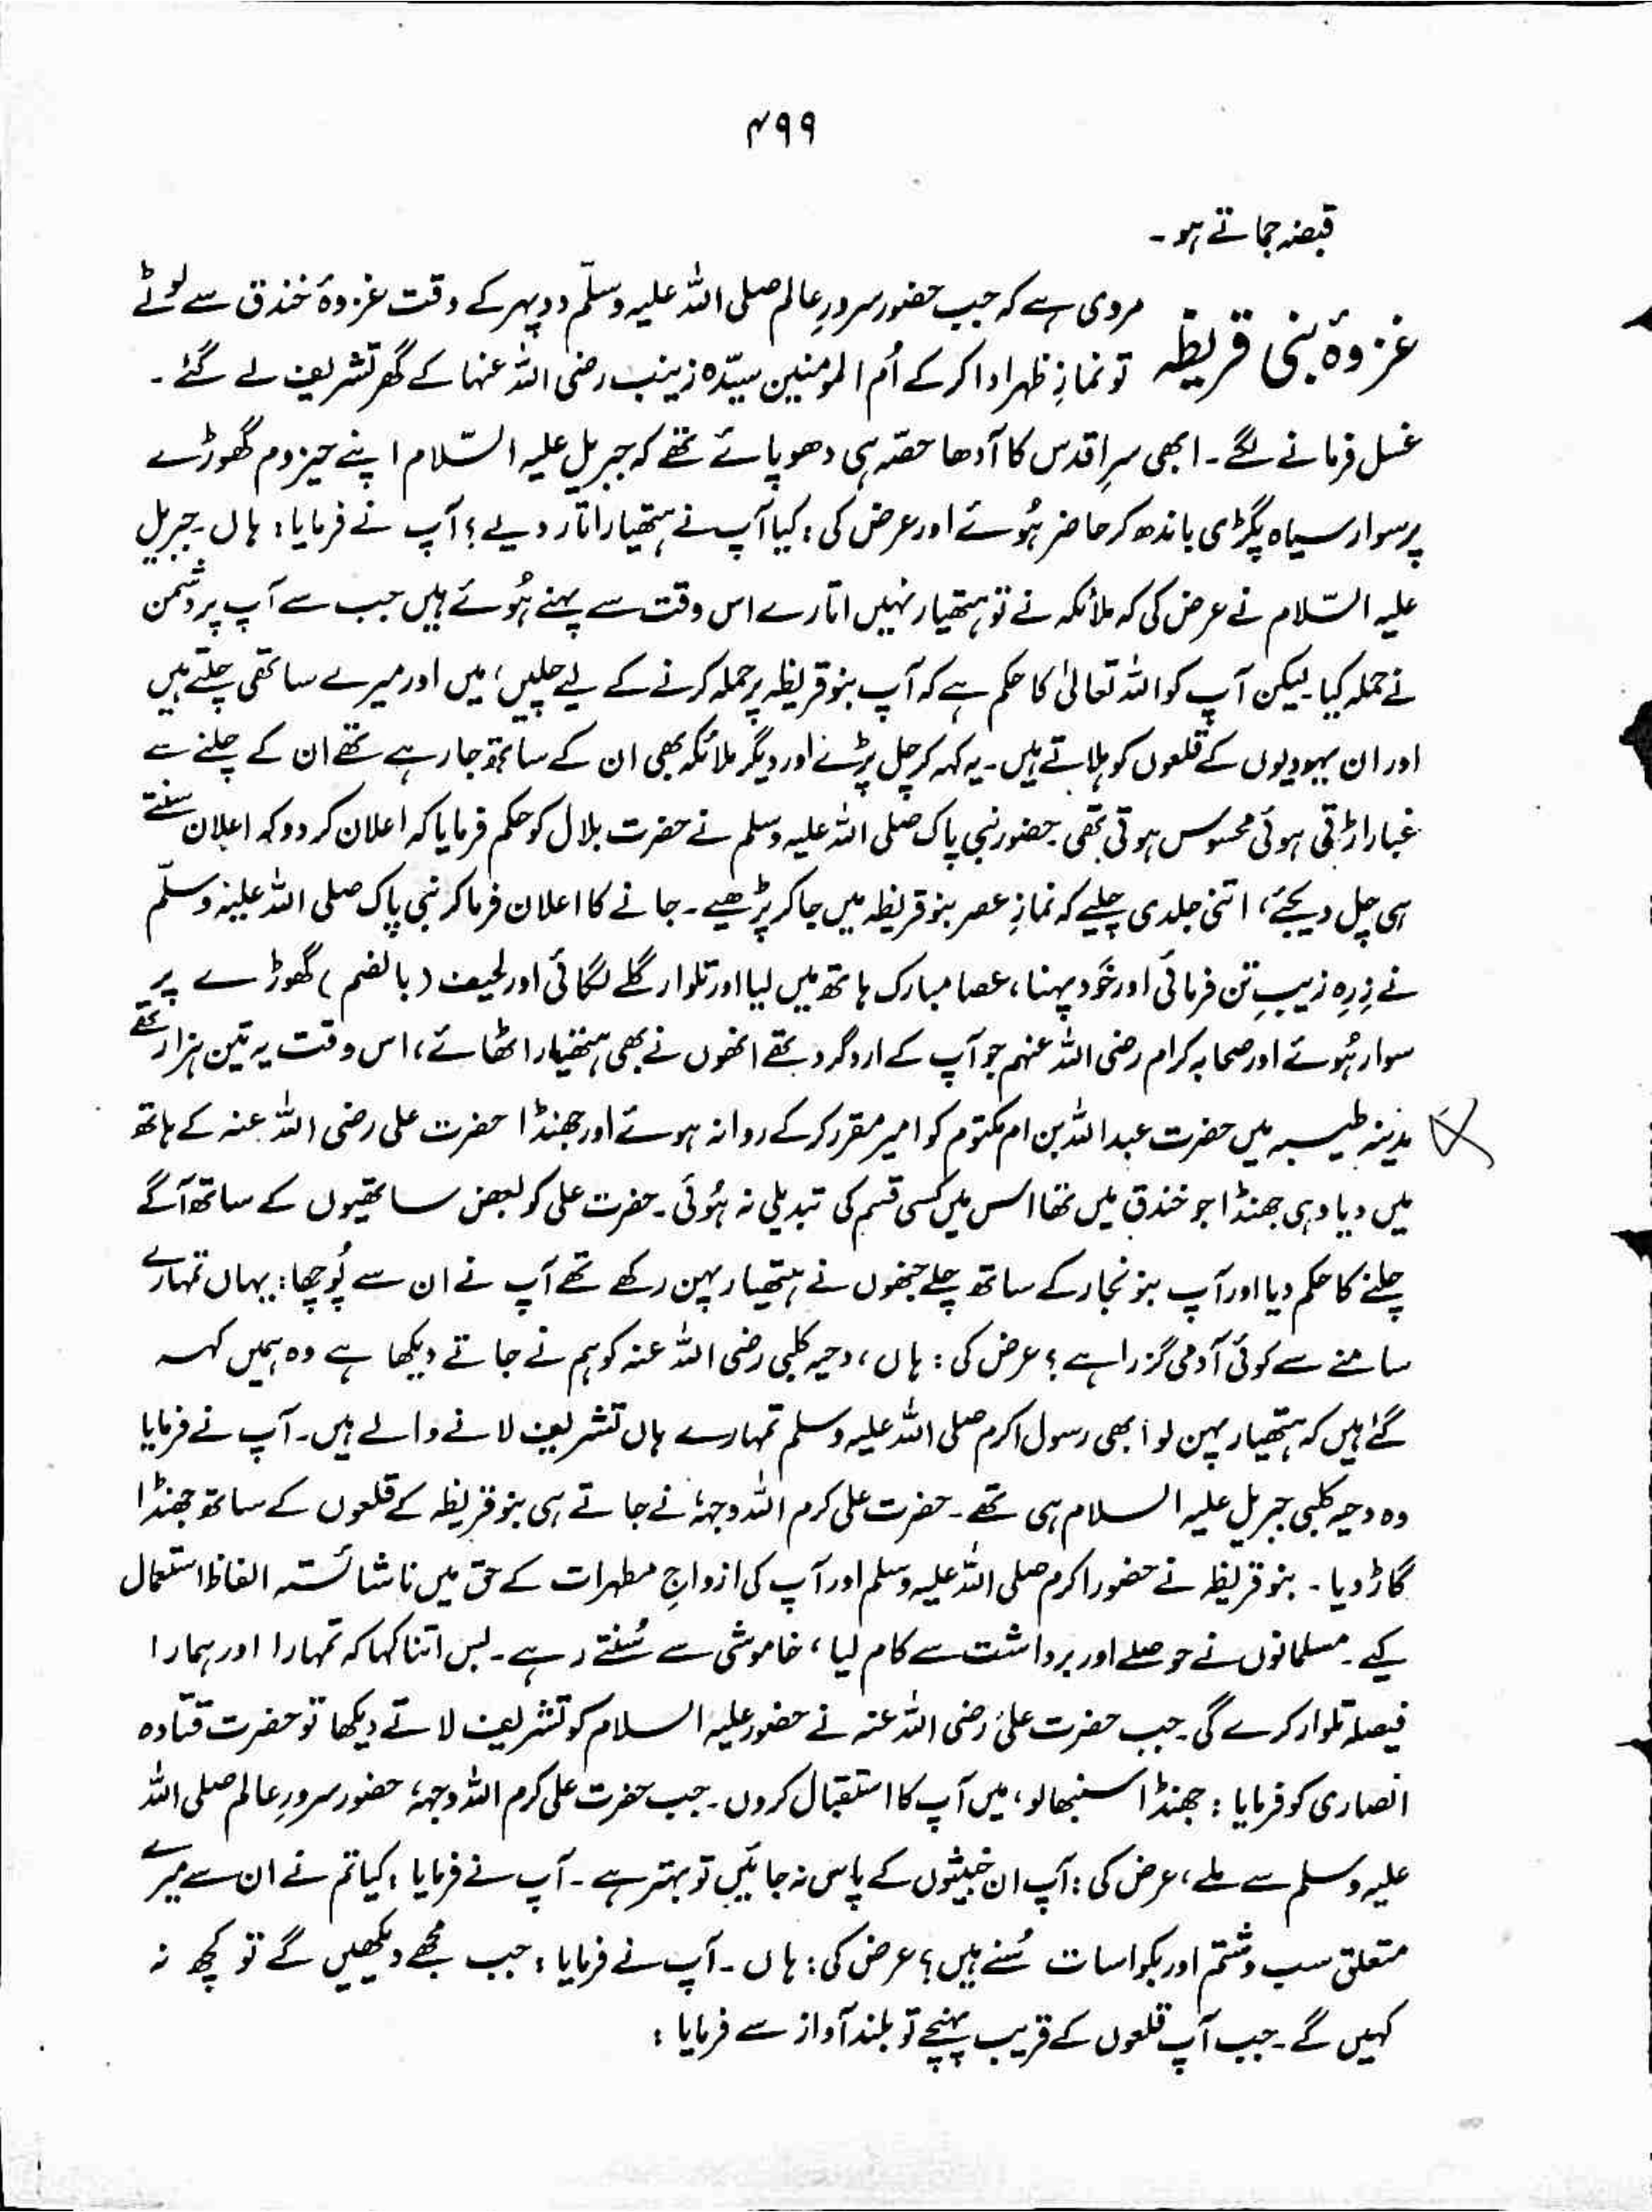 ۴۹۹
قبضہ جماتے ہو۔
غزوۂ بنی قریظہ
مروی ہے کہ جب حضور سرورِ عالم صلی اللہ علیہ وسلّم دوپہر کے وقت غزوۂ خندق سے لوٹے
تو نمازِ ظہر ادا کر کے اُم المومنین سیّدہ زینب رضی اللہ عنہا کے گھر تشریف لے گئے۔
غسل فرمانے لگے۔ ابھی سرِ اقدس کا آدھا حصّہ ہی دھو پائے تھے کہ جبریل علیہ السّلام اپنے حیزوم گھوڑے
پر سوار سیاہ پگڑی باندھ کر حاضر ہُوئے اور عرض کی: کیا آپ نے ہتھیار اتار دیے؟ آپ نے فرمایا: ہاں۔ جبریل
علیہ السّلام نے عرض کی کہ ملائکہ نے تو ہتھیار نہیں اتارے اس وقت سے پہنے ہُوئے ہیں جب سے آپ پر دشمن
نے حملہ کیا۔ لیکن آپ کو اللہ تعالیٰ کا حکم ہے کہ آپ بنو قریظہ پر حملہ کرنے کے لیے چلیں، میں اور میرے ساتھی چلتے ہیں
اور ان یہودیوں کے قلعوں کو ہلاتے ہیں۔ یہ کہہ کر چل پڑے اور دیگر ملائکہ بھی ان کے ساتھ جا رہے تھے ان کے چلنے سے
غبار اڑتی ہوئی محسوس ہوتی تھی۔ حضور نبی پاک صلی اللہ علیہ وسلم نے حضرت بلال کو حکم فرمایا کہ اعلان کر دو کہ اعلان سنتے
ہی چل دیجئے، اتنی جلدی چلیے کہ نمازِ عصر بنو قریظہ میں جا کر پڑھیے۔ جانے کا اعلان فرما کر نبی پاک صلی اللہ علیہ وسلّم
نے زِرہ زیبِ تن فرمائی اور خَود پہنا، عصا مبارک ہاتھ میں لیا اور تلوار گلے لگائی اور لحیف (بالضم) گھوڑے پر
سوار ہُوئے اور صحابہ کرام رضی اللہ عنہم جو آپ کے اردگرد تھے انھوں نے بھی ہتھیار اٹھائے، اس وقت یہ تین ہزار تھے
مدینہ طیبہ میں حضرت عبداللہ بن ام مکتوم کو امیر مقرر کر کے روانہ ہوئے اور جھنڈا حضرت علی رضی اللہ عنہ کے ہاتھ
میں دیا وہی جھنڈا جو خندق میں تھا اس میں کسی قسم کی تبدیلی نہ ہُوئی۔ حضرت علی کو بعض ساتھیوں کے ساتھ آگے
چلنے کا حکم دیا اور آپ بنو نجار کے ساتھ چلے جنھوں نے ہتھیار پہن رکھے تھے آپ نے ان سے پُوچھا: یہاں تمہارے
سامنے سے کوئی آدمی گزرا ہے؟ عرض کی: ہاں، دحیہ کلبی رضی اللہ عنہ کو ہم نے جاتے دیکھا ہے وہ ہمیں کہہ
گئے ہیں کہ ہتھیار پہن لو ابھی رسول اکرم صلی اللہ علیہ وسلم تمہارے ہاں تشریف لانے والے ہیں۔ آپ نے فرمایا
وہ دحیہ کلبی جبریل علیہ السلام ہی تھے۔ حضرت علی کرم اللہ وجہہٗ نے جاتے ہی بنو قریظہ کے قلعوں کے ساتھ جھنڈا
گاڑ دیا۔ بنو قریظہ نے حضور اکرم صلی اللہ علیہ وسلم اور آپ کی ازواجِ مطہرات کے حق میں ناشائستہ الفاظ استعمال
کیے۔ مسلمانوں نے حوصلے اور برداشت سے کام لیا، خاموشی سے سُنتے رہے۔ بس اتنا کہا کہ تمہارا اور ہمارا
فیصلہ تلوار کرے گی۔ جب حضرت علی رضی اللہ عنہ نے حضور علیہ السلام کو تشریف لاتے دیکھا تو حضرت قتادہ
انصاری کو فرمایا: جھنڈا سنبھالو، میں آپ کا استقبال کروں۔ جب حضرت علی کرم اللہ وجہہٗ حضور سرورِ عالم صلی اللہ
علیہ وسلم سے ملے، عرض کی: آپ ان خبیثوں کے پاس نہ جائیں تو بہتر ہے۔ آپ نے فرمایا: کیا تم نے ان سے میرے
متعلق سب و شتم اور بکواسات سُنے ہیں؟ عرض کی: ہاں۔ آپ نے فرمایا: جب مجھے دیکھیں گے تو کچھ نہ
کہیں گے۔ جب آپ قلعوں کے قریب پہنچے تو بلند آواز سے فرمایا: